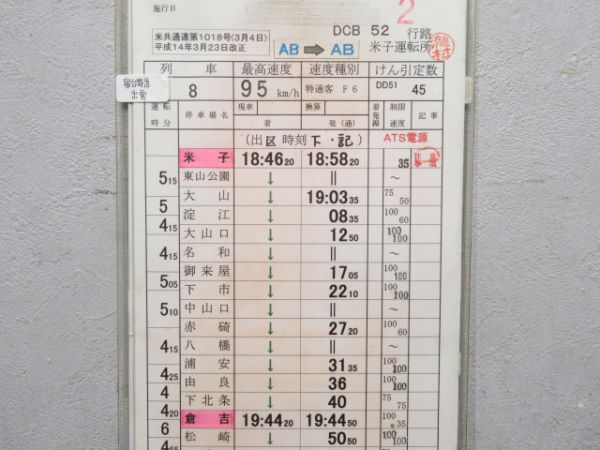 施行日
2
米共通達第1018号(3月4日)
平成14年3月23日改正
AB ➡ AB
DCB 52 行路
米子運転所
列車 最高速度 速度種別 けん引定数
8 95 km/h 特通客 F6 DD51 45
寝台特急
出雲
運転時分 停車場名 現車 着 換算 発(通) 着発線 制限速度 記事
(出区時刻 下・記) ATS電源
米子 18:46 20 18:58 20 35
5 15
東山公園 ↓ || ～
大山 ↓ 19:03 35 75 50
5
淀江 ↓ 08 35 100 60
4 15
大山口 ↓ 12 50 100 100
4 15
名和 ↓ || ～
御来屋 ↓ 17 05 100 100
5 05
下市 ↓ 22 10 100 100
5 10
中山口 ↓ || ～
赤碕 ↓ 27 20 100 60
4 15
八橋 ↓ || ～
浦安 ↓ 31 35 100 100
4 25
由良 ↓ 36 100 100
4
下北条 ↓ 40 75 75
4 20
倉吉 19:44 20 19:44 50 100 35
6
松崎 ↓ 50 50 100 100
4 55